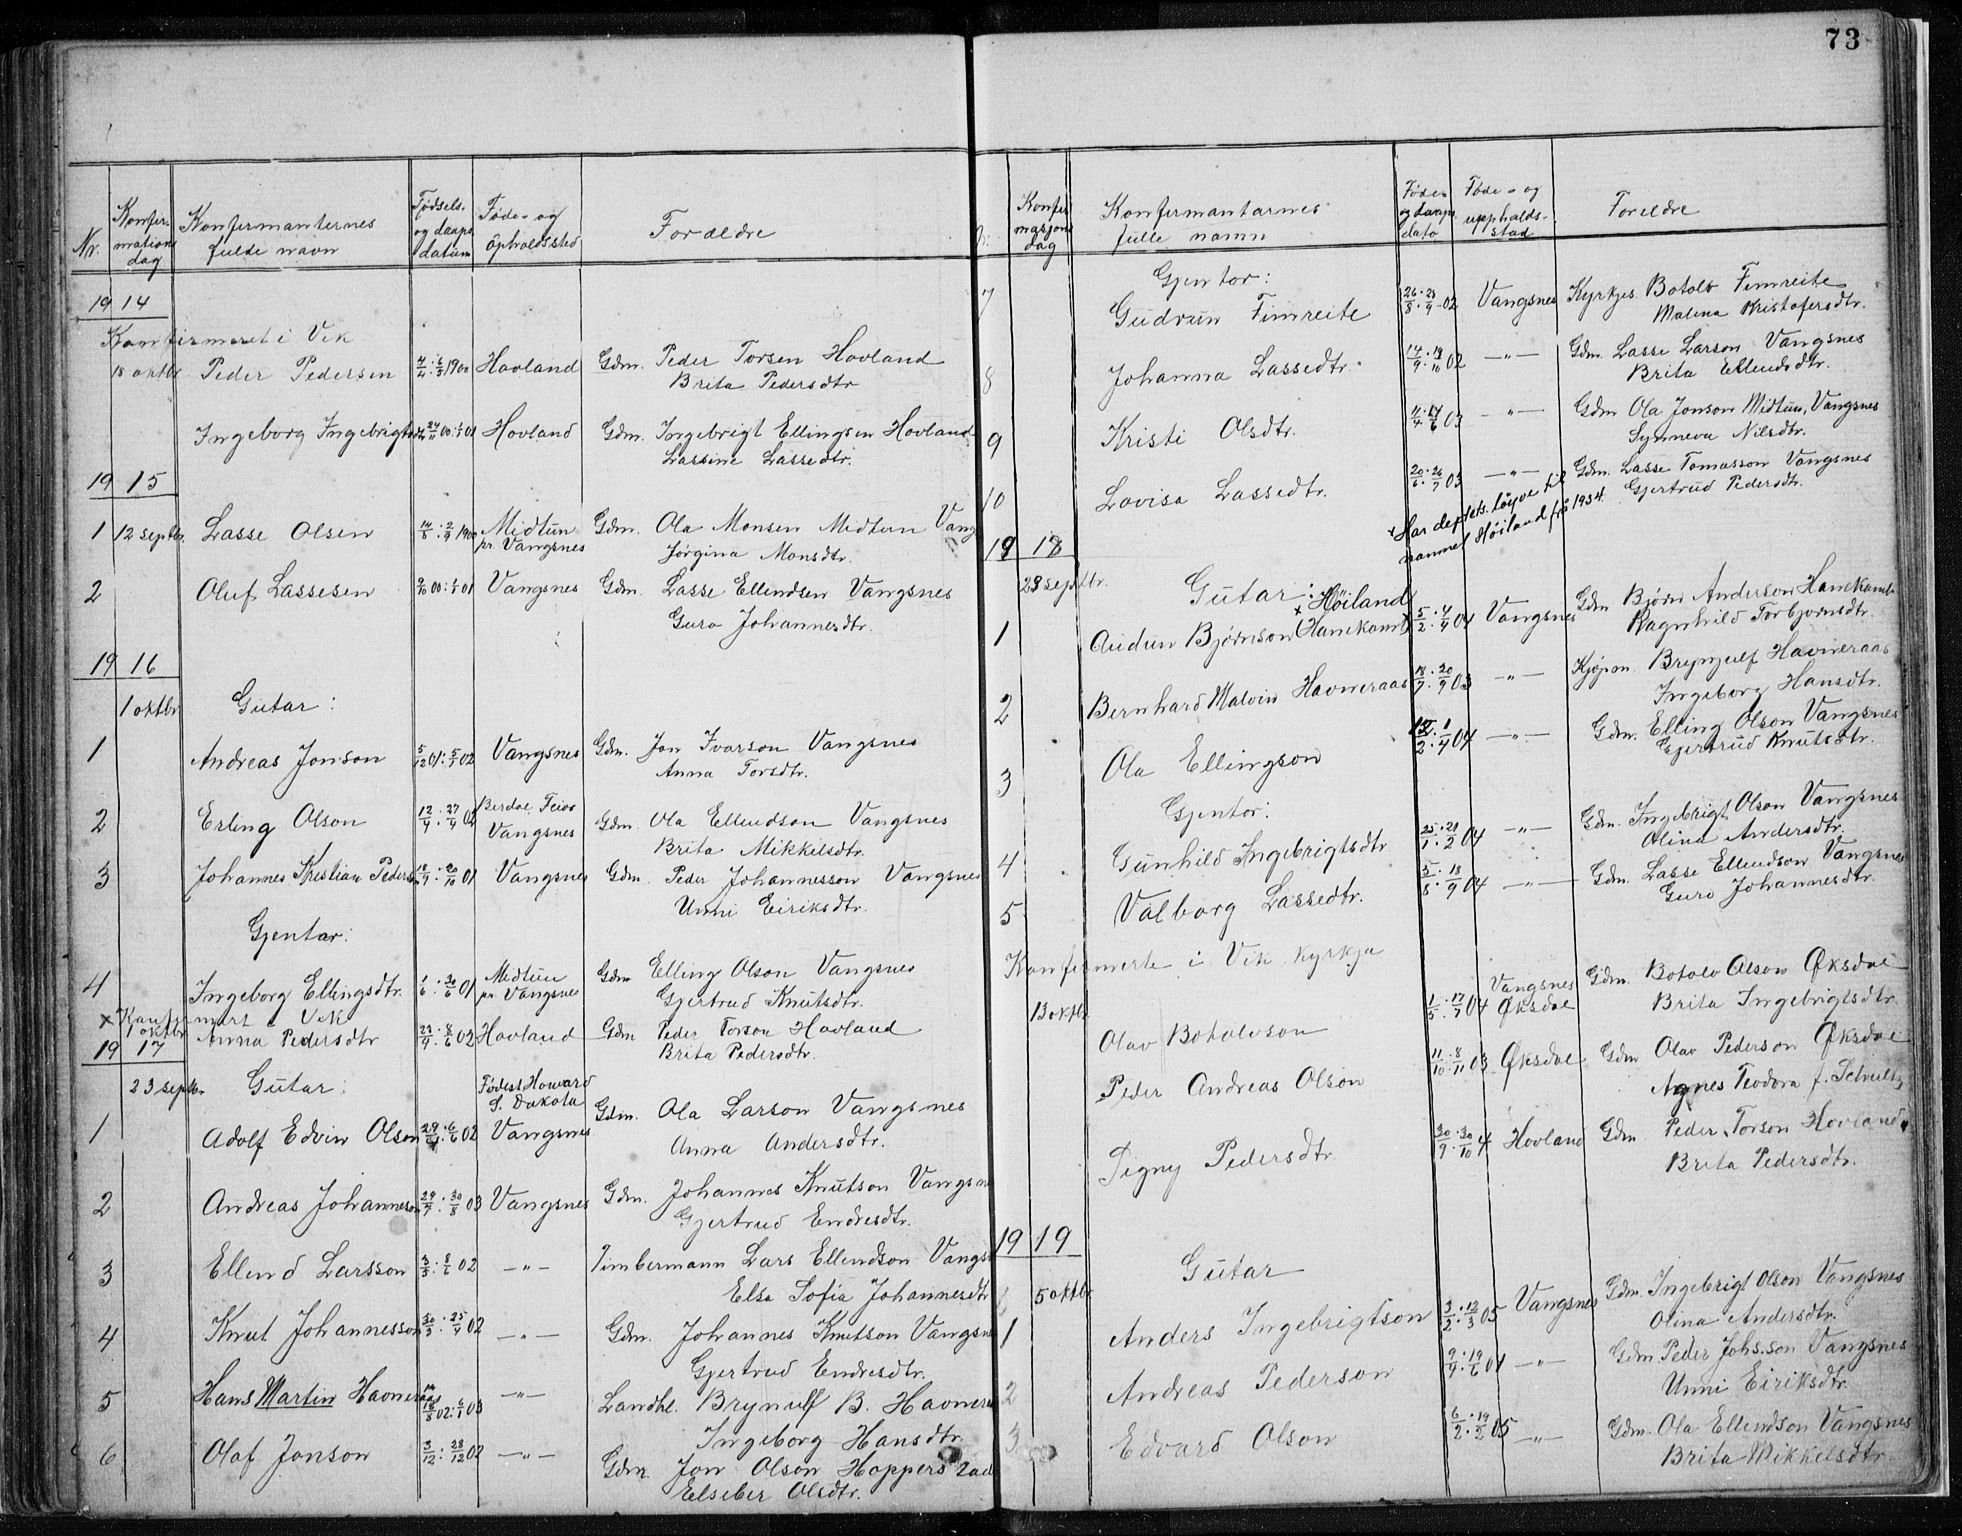 73
Nr.
Konfir-
mations
dag
Konfirmanternes
fulde navn
Fødsels-
og daaps
datum
Føde- og
Opholdssted
Forældre
19 14
Konfirmeret i Vik
18 oktbr. Peder Pedersen 4/4 : 6/5 1900 Hovland Gdm. Peder Torsen Hovland
Brita Pedersdtr
Ingeborg Ingebrigtsdtr 24/11 00 : 1/1 01 Hovland Gdm. Ingebrigt Ellingsen Hovland
Lassine Lassedtr.
19 15
1 12 septbr. Lasse Olsen 14/8 : 2/9 1900 Midtun pr. Vangsnes Gdm. Ola Monsen Midtun Vang
Jørgina Monsdtr.
2 Oluf Lassesen 9/10 00 : 1/1 01 Vangsnes Gdm. Lasse Ellendsen Vangsnes
Guro Johannesdtr.
19 16
1 oktbr Gutar :
1 Andreas Jonson 5/12 01 : 5/1 02 Vangsnes Gdm. Jon Ivarson Vangsnes
Anna Torsdtr.
2 Erling Olson 12/4 : 27/4 02 Berdal Feios Vangsnes Gdm. Ola Ellendson Vangsnes
Brita Mikkelsdtr.
3 Johannes Kristian Pederson 18/9 : 20/10 01 Vangsnes Gdm. Peder Johannesson Vangsnes
Unni Eiriksdtr.
Gjentar:
4 Ingeborg Ellingsdtr. 1/6 : 30/6 01 Midtun pr Vangsnes Gdm Elling Olson Vangsnes
Gjertrud Knutsdtr.
x Konfirmert i Vik
1 oktbr Anna Pedersdtr 29/4 : 8/6 02 Hovland Gdm Peder Torson Hovland
Brita Pedersdtr.
19 17
23 septbr. Gutar :
1 Adolf Edvin Olson 29/4 : 6/6 02 Født i Howard S. Dakota Vangsnes Gdm. Ola Larson Vangsnes
Anna Andersdtr.
2 Andreas Johannesson 29/7 : 30/8 03 Vangsnes Gdm. Johannes Knutson Vangsn
Gjertrud Endresdtr.
3 Ellend Larsson 3/5 : 8/6 02 — „ — Timbermann Lars Ellendson Vangs
Elsa Sofia Johannesdtr
4 Knut Johannesson 30/3 : 25/4 02 — „ — Gdm. Johannes Knutson Vangsn
Gjertrud Endresdtr.
5 Hans Martin Havneraas 18/8 02 : 6/1 03 — „ — Landhl. Brynulf B. Havnera
Ingeborg Hansdtr.
6 Olaf Jonson 3/12 : 28/12 02 — „ — Gdm. Jon Olson Hopperstad
Elseber Olsdtr.
Konfir
masjons
dag
Konfirmantarnes
fulle namn
Føde-
og daaps
dato
Føde- og
uppholds-
stad
Foreldre
Gjentor:
7 Gudrun Fimreite 26/8 · 23/9 - 02 Vangsnes Kyrkjes. Botolv Fimreite
Malena Kristofersdtr.
8 Johanna Lassedtr. 14/9 · 19/10 02 — „ — Gdm. Lasse Larson Vangsnes
Brita Ellendsdtr.
9 Kristi Olsdtr. 11/4 · 14/6 03 — „ — Gdm Ola Jonson Midtun, Vangsnes
Synneva Nilsdtr.
10 Lovisa Lassedtr. 20/6 · 26/7 03 — „ — Gdm. Lasse Tomasson Vangsnes
Gjertrud Pedersdtr.
x Har deptets. løyve til
namnet Høiland frå 1934.
19 18
23 septbr. Gutar :
x Høiland
1 Audun Bjørnson Hanekamb 5/2 · 4/4 04 Vangsnes Gdm Bjørn Anderson Hanekamb
Ragnhild Torbjørnsdtr.
2 Bernhard Malvin Havneraas 18/7 · 20/9 03 — „ — Kjøpm. Brynjulf Havneraas
Ingeborg Hansdtr.
3 Ola Ellingson 12/2 · 1/4 04 — „ — Gdm. Elling Olson Vangsnes
Gjertrud Knutsdtr.
Gjentor:
4 Gunhild Ingebrigtsdtr 25/1 · 21/2 04 — „ — Gdm. Ingebrigt Olson Vangsnes
Olina Andersdtr.
5 Valborg Lassedtr. 5/8 · 18/9 04 — „ — Gdm. Lasse Ellendson Vangsnes
Guro Johannesdtr.
Konfirmerte i Vik kyrkja
13 oktbr Olav Botolvson 1/5 · 17/7 04 Vangsnes Øksdal Gdm Botolv Olson Øksdal
Brita Ingebrigtsdtr
Peder Andreas Olson 11/10 · 8/11 03 Øksdal Gdm Olav Pederson Øksdal
Agnes Teodora f. Schultz
Signy Pedersdtr 30/9 · 30/10 4 Hovland Gdm Peder Torson Hovland,
Brita Pedersdtr.
19 19
Gutar
5 oktbr.
1 Anders Ingebrigtson 3/2 · 12/3 05 Vangsnes Gdm. Ingebrigt Olson Vangsnes
Olina Andersdtr.
2 Andreas Pederson 9/4 · 19/6 04 — „ — Gdm Peder Johs.son Vangsnes
Unni Eiriksdtr.
3 Edvard Olson 6/2 · 19/2 05 — „ — Gdm. Ola Ellendson Vangsnes
Brita Mikkelsdtr.